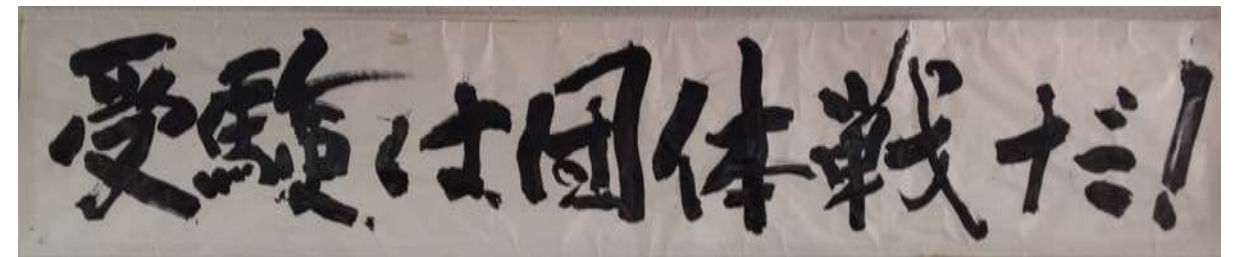 受験は団体戦だ!